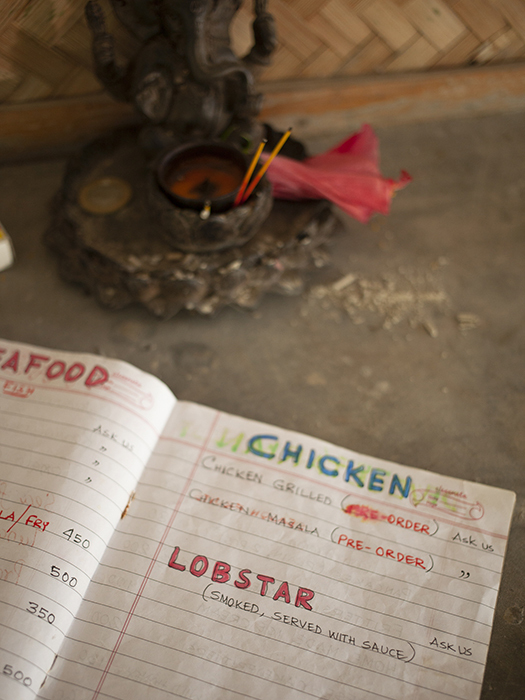 EAFOOD
FISH
ASK US
"
"
LA/FRY 450
500
350
500
CHICKEN
CHICKEN GRILLED (PRE-ORDER) ASK US
CHICKEN MASALA (PRE-ORDER) "
LOBSTAR
(SMOKED, SERVED WITH SAUCE) ASK US